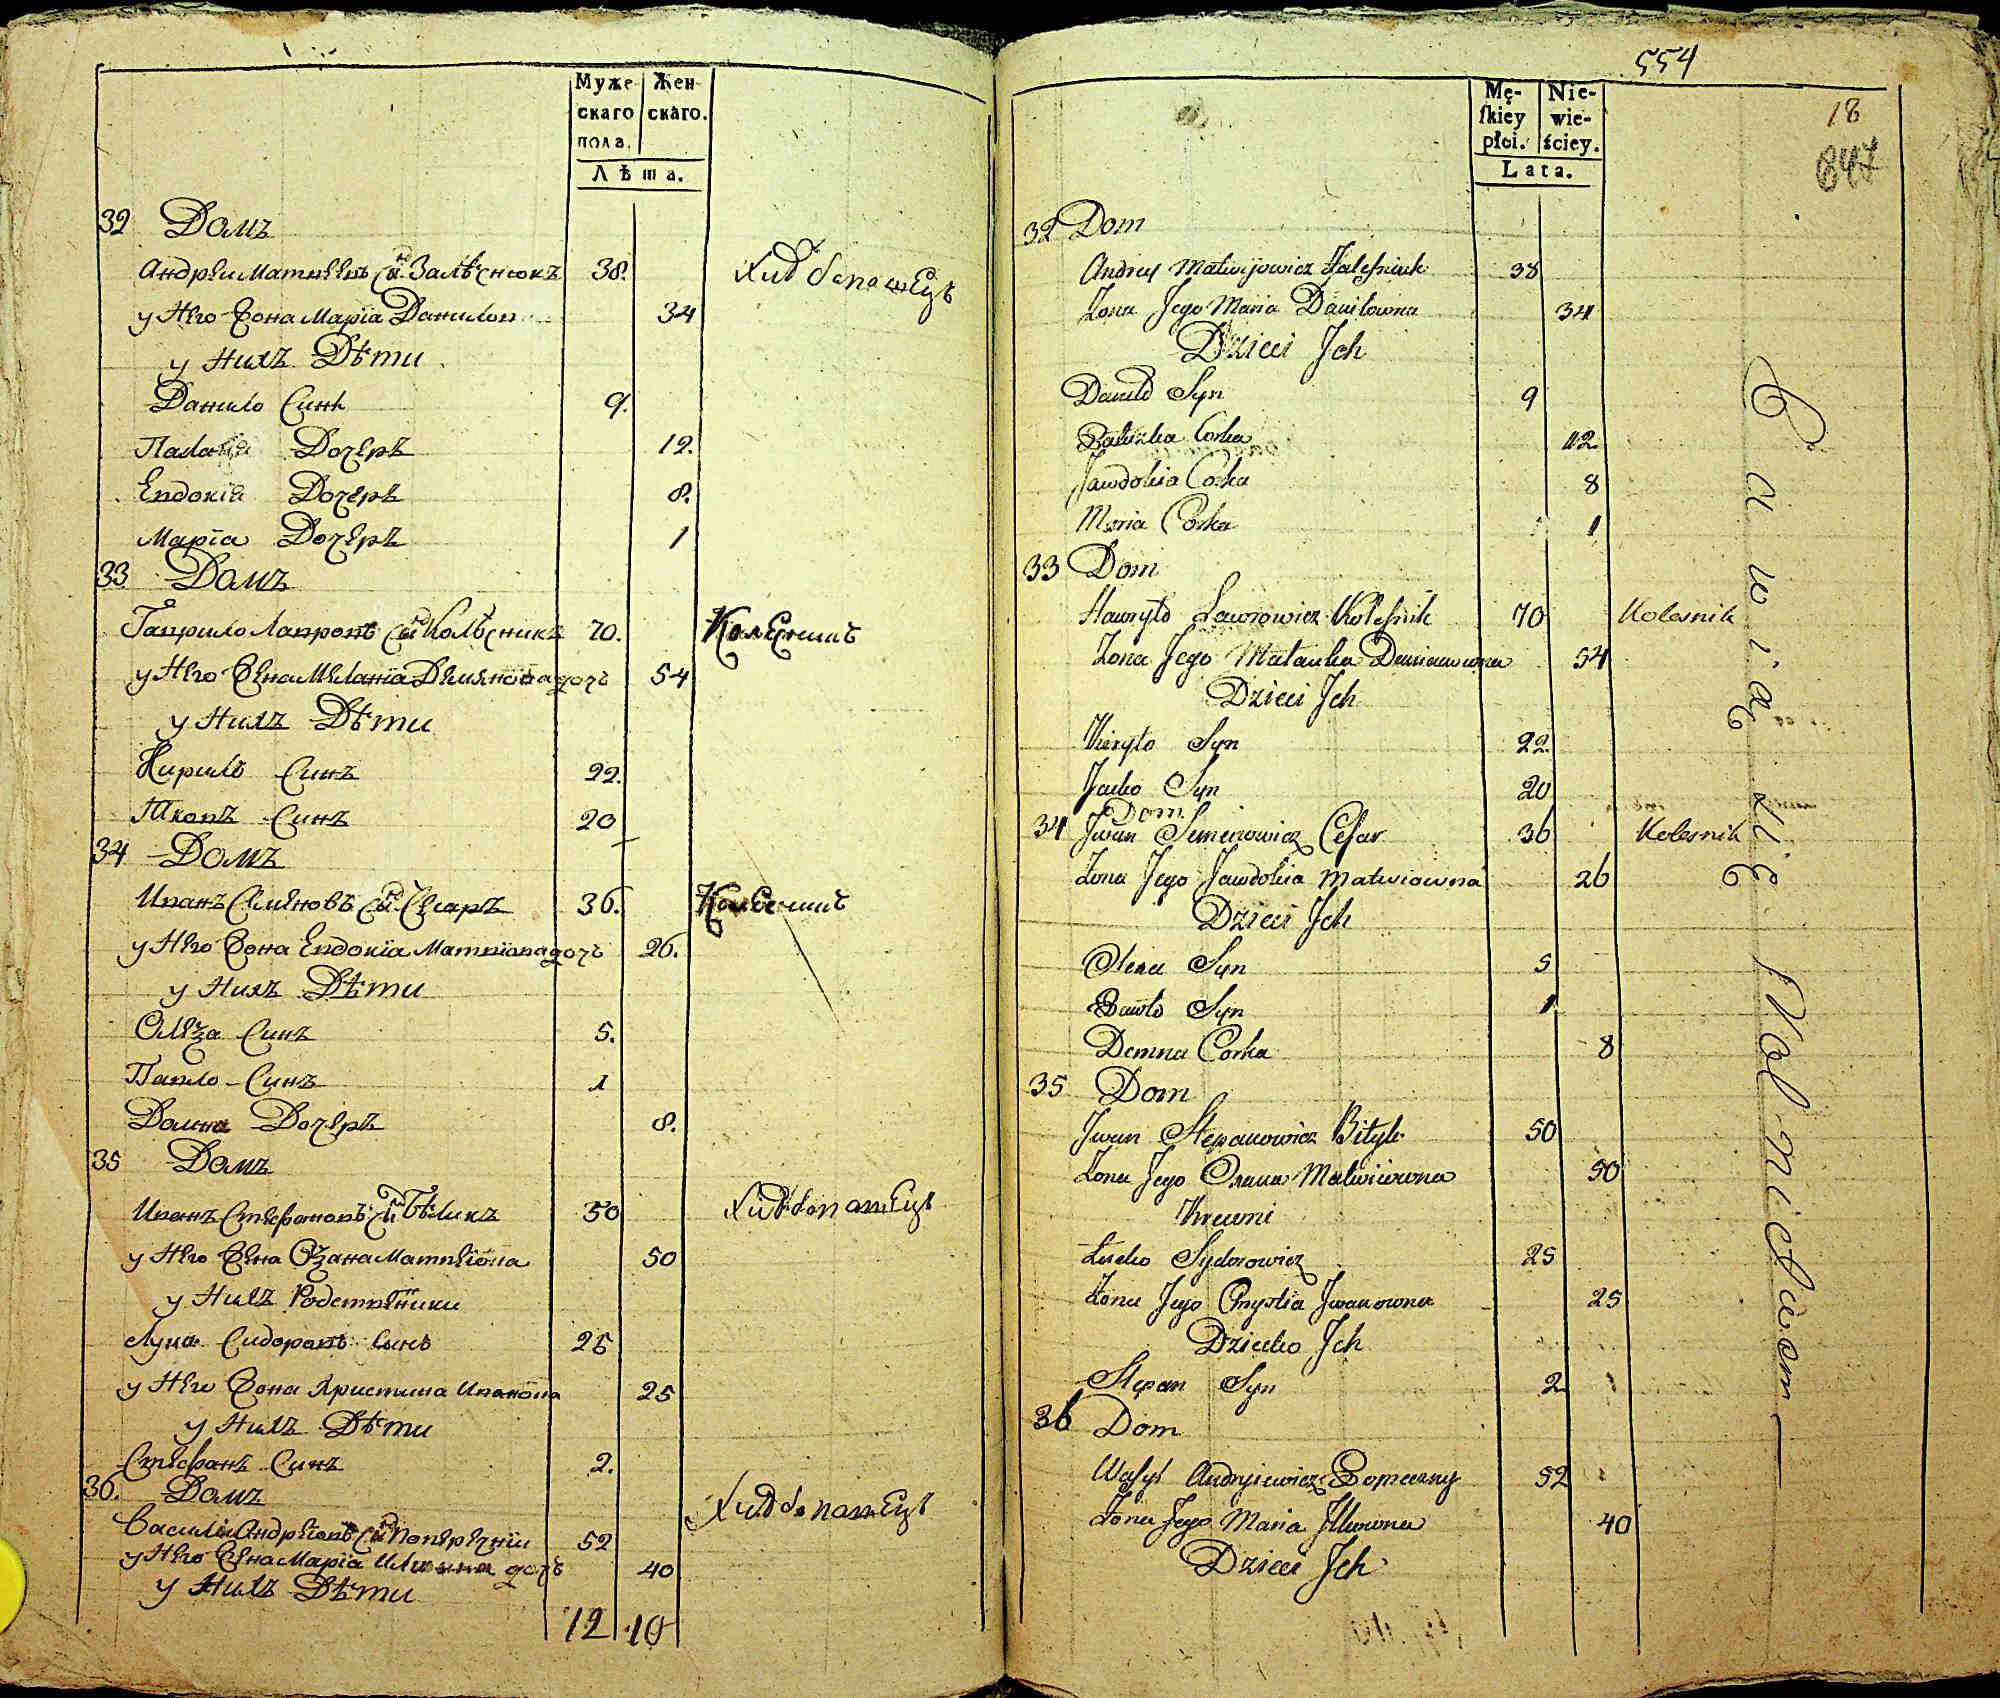 Муже-
скаго
пола.
Жен-
скаго.
Лѣта.
32 Домъ
Андрей Матвѣевъ Сн҃ Залѣснюкъ 38.
у Него Жона Марїа Данилов 34
у Нихъ Дѣти
Данило Синъ 9.
Палагїа Дочеръ 12.
Евдокїа Дочеръ 8.
Марїа Дочеръ 1
33 Домъ
Гаврило Лавровъ Сн҃ Колѣсникъ 70. Колѣсникъ
у Него Жена Меланїа Демянова дочъ 54
у Нихъ Дѣти
Кирило Синъ 22.
Яковъ Синъ 20
34 Домъ
Иванъ Семѣновъ Сн҃ Сесаръ 36. Колесникъ
у Него Жона Евдокїа Матвїова дочъ 26.
у Нихъ Дѣти
Олеза Синъ 5.
Павло Синъ 1
Домна Дочеръ 8.
35 Домъ
Иванъ Стефановъ Сн҃ Бѣликъ 50
у Него Жена Оѯана Матвеїова 50
у Нихъ Родствѣники
Лука Сидоровъ Синъ 25
у Него Жона Христина Иванова 25
у Нихъ Дѣти
Стефанъ Синъ 2.
36. Домъ
Василїй Андрїовъ Сн҃ Поперечнїи 52
у Него Жена Марїа дочъ 40
у Нихъ Дѣти
12 10
554
18
847
Mę-
ſkiey
płci.
Nie-
wie-
ściey.
Lata.
32 Dom
Andrey Matwijowicz Zaleſniuk 38
Zona Jego Maria Daniłowna 34
Dzieci Jch
Daniło Syn 9
Corka 12
Jawdokia Corka 8
Maria Corka 1
33 Dom
Hawryło Lawrowicz Koleſnik 70 Kolesnik
Zona Jego Małanka Demianowna 54
Dzieci Jch
Kiryło Syn 22
Jacko Syn 20
Dom
34 Jwan Semenowicz Ceſar 36 Kolesnik
Zona Jego Jawdokia Matwiowna 26
Dzieci Jch
Olexa Syn 5
Pawło Syn 1
Domna Corka 8
35 Dom
Jwan Stepanowicz Bityk 50
Zona Jego Oxana Matwiiowna 50
Krewni
Łucko Sydorowicz 25
Zona Jego Chrystia Jwanowna 25
Dziecko Jch
Stepan Syn 2
36 Dom
Waſyl Andryiewicz Popereczny 52
Zona Jego Maria Jlkowna 40
Dzieci Jch
Bawią się Rolnictwem